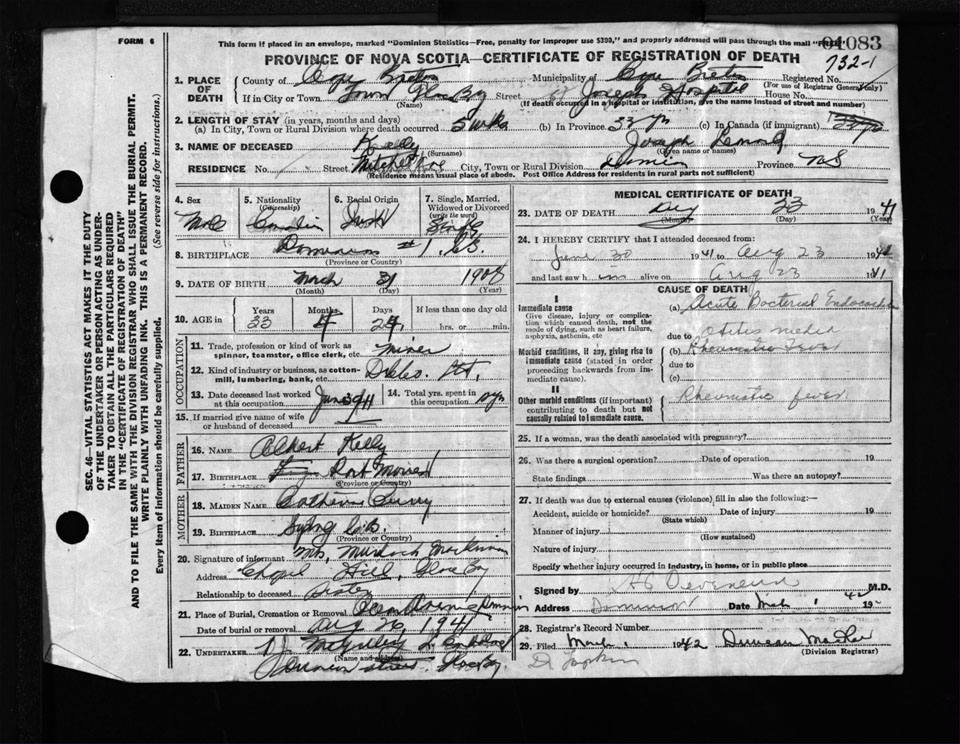 FORM 6
This form if placed in an envelope, marked "Dominion Statistics—Free, penalty for improper use $300," and properly addressed will pass through the mail "Free"
01083
PROVINCE OF NOVA SCOTIA—CERTIFICATE OF REGISTRATION OF DEATH
732-1
1. PLACE OF DEATH
County of Cape Breton Municipality of Cape Breton Registered No.
(For use of Registrar General only)
If in City or Town Town Glace Bay Street St Josephs Hospital House No.
(Name) (If death occurred in a hospital or institution, give the name instead of street and number)
2. LENGTH OF STAY (in years, months and days)
(a) In City, Town or Rural Division where death occurred 5 wks (b) In Province 33 yrs (c) In Canada (if immigrant)
3. NAME OF DECEASED Kelly Joseph
(Surname) (Given name or names)
RESIDENCE No. Street Mitchell Ave City, Town or Rural Division Dominion Province N.S
(Residence means usual place of abode. Post Office Address for residents in rural parts not sufficient)
4. Sex Male
5. Nationality (Citizenship) Canadian
6. Racial Origin Irish
7. Single, Married, Widowed or Divorced (write the word) Single
8. BIRTHPLACE Dominion #1 C.B.
(Province or Country)
9. DATE OF BIRTH March 31 1908
(Month) (Day) (Year)
10. AGE IN Years 33 Months 4 Days 24 If less than one day old
hrs. or min.
OCCUPATION
11. Trade, profession or kind of work as spinner, teamster, office clerk, etc. miner
12. Kind of industry or business, as cotton-mill, lumbering, bank, etc.
13. Date deceased last worked at this occupation June 1941
14. Total yrs. spent in this occupation
15. If married give name of wife or husband of deceased
FATHER
16. NAME Albert Kelly
17. BIRTHPLACE Port Morien
(Province or Country)
MOTHER
18. MAIDEN NAME Catherine
19. BIRTHPLACE Sydney C.B.
(Province or Country)
20. Signature of informant Mrs. Murdock MacKinnon
Address Chapel Hill, Glace Bay
Relationship to deceased Sister
21. Place of Burial, Cremation or Removal Dominion
Date of burial or removal Aug 26, 1941
22. UNDERTAKER
(Name and address)
Glace Bay
MEDICAL CERTIFICATE OF DEATH
23. DATE OF DEATH Aug 23 1941
(Month) (Day) (Year)
24. I HEREBY CERTIFY that I attended deceased from:
June 30 1941 to Aug 23 1941
and last saw him alive on Aug 23 1941
CAUSE OF DEATH
I
Immediate cause
Give disease, injury or complication which caused death, not the mode of dying, such as heart failure, asphyxia, asthenia, etc
(a) Acute Bacterial Endocarditis
due to Otitis media
Morbid conditions, if any, giving rise to immediate cause (stated in order proceeding backwards from immediate cause).
(b) Rheumatic Fever
due to
(c)
II
Other morbid conditions (if important) contributing to death but not causally related to immediate cause.
Rheumatic fever
25. If a woman, was the death associated with pregnancy?
26. Was there a surgical operation? Date of operation 19
State findings Was there an autopsy?
27. If death was due to external causes (violence) fill in also the following:—
Accident, suicide or homicide? Date of injury 19
(State which)
Manner of injury
(How sustained)
Nature of injury
Specify whether injury occurred in industry, in home, or in public place
Signed by M.D.
Address Dominion Date Mch 1 1942
28. Registrar's Record Number
29. Filed March 1 1942 Duncan
(Division Registrar)
SEC. 46—VITAL STATISTICS ACT MAKES IT THE DUTY
OF THE UNDERTAKER OR PERSON ACTING AS UNDERTAKER
TO OBTAIN ALL THE PARTICULARS REQUIRED
IN THE "CERTIFICATE OF REGISTRATION OF DEATH"
AND TO FILE THE SAME WITH THE DIVISION REGISTRAR WHO SHALL ISSUE THE BURIAL PERMIT.
WRITE PLAINLY WITH UNFADING INK. THIS IS A PERMANENT RECORD.
Every item of information should be carefully supplied. (See reverse side for instructions.)